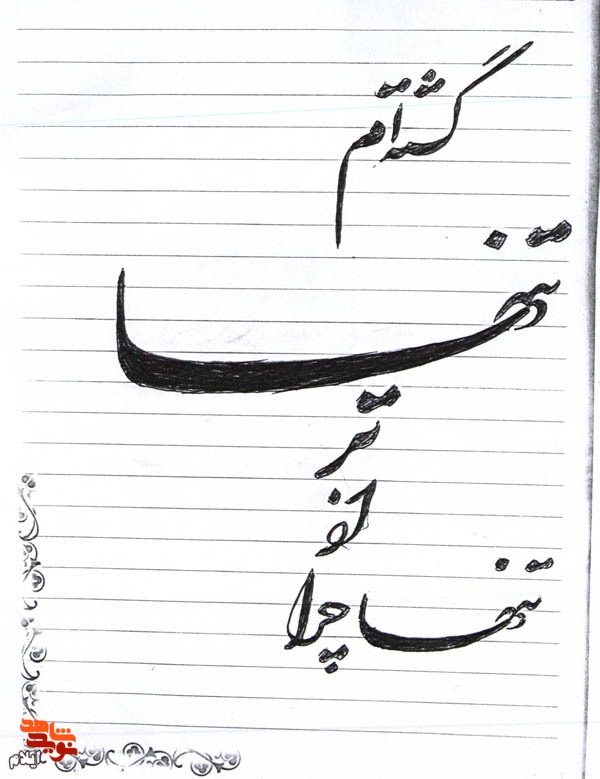 گشته ام
تنها
تر
از
تنها چرا
نوید شاهد
ایلام